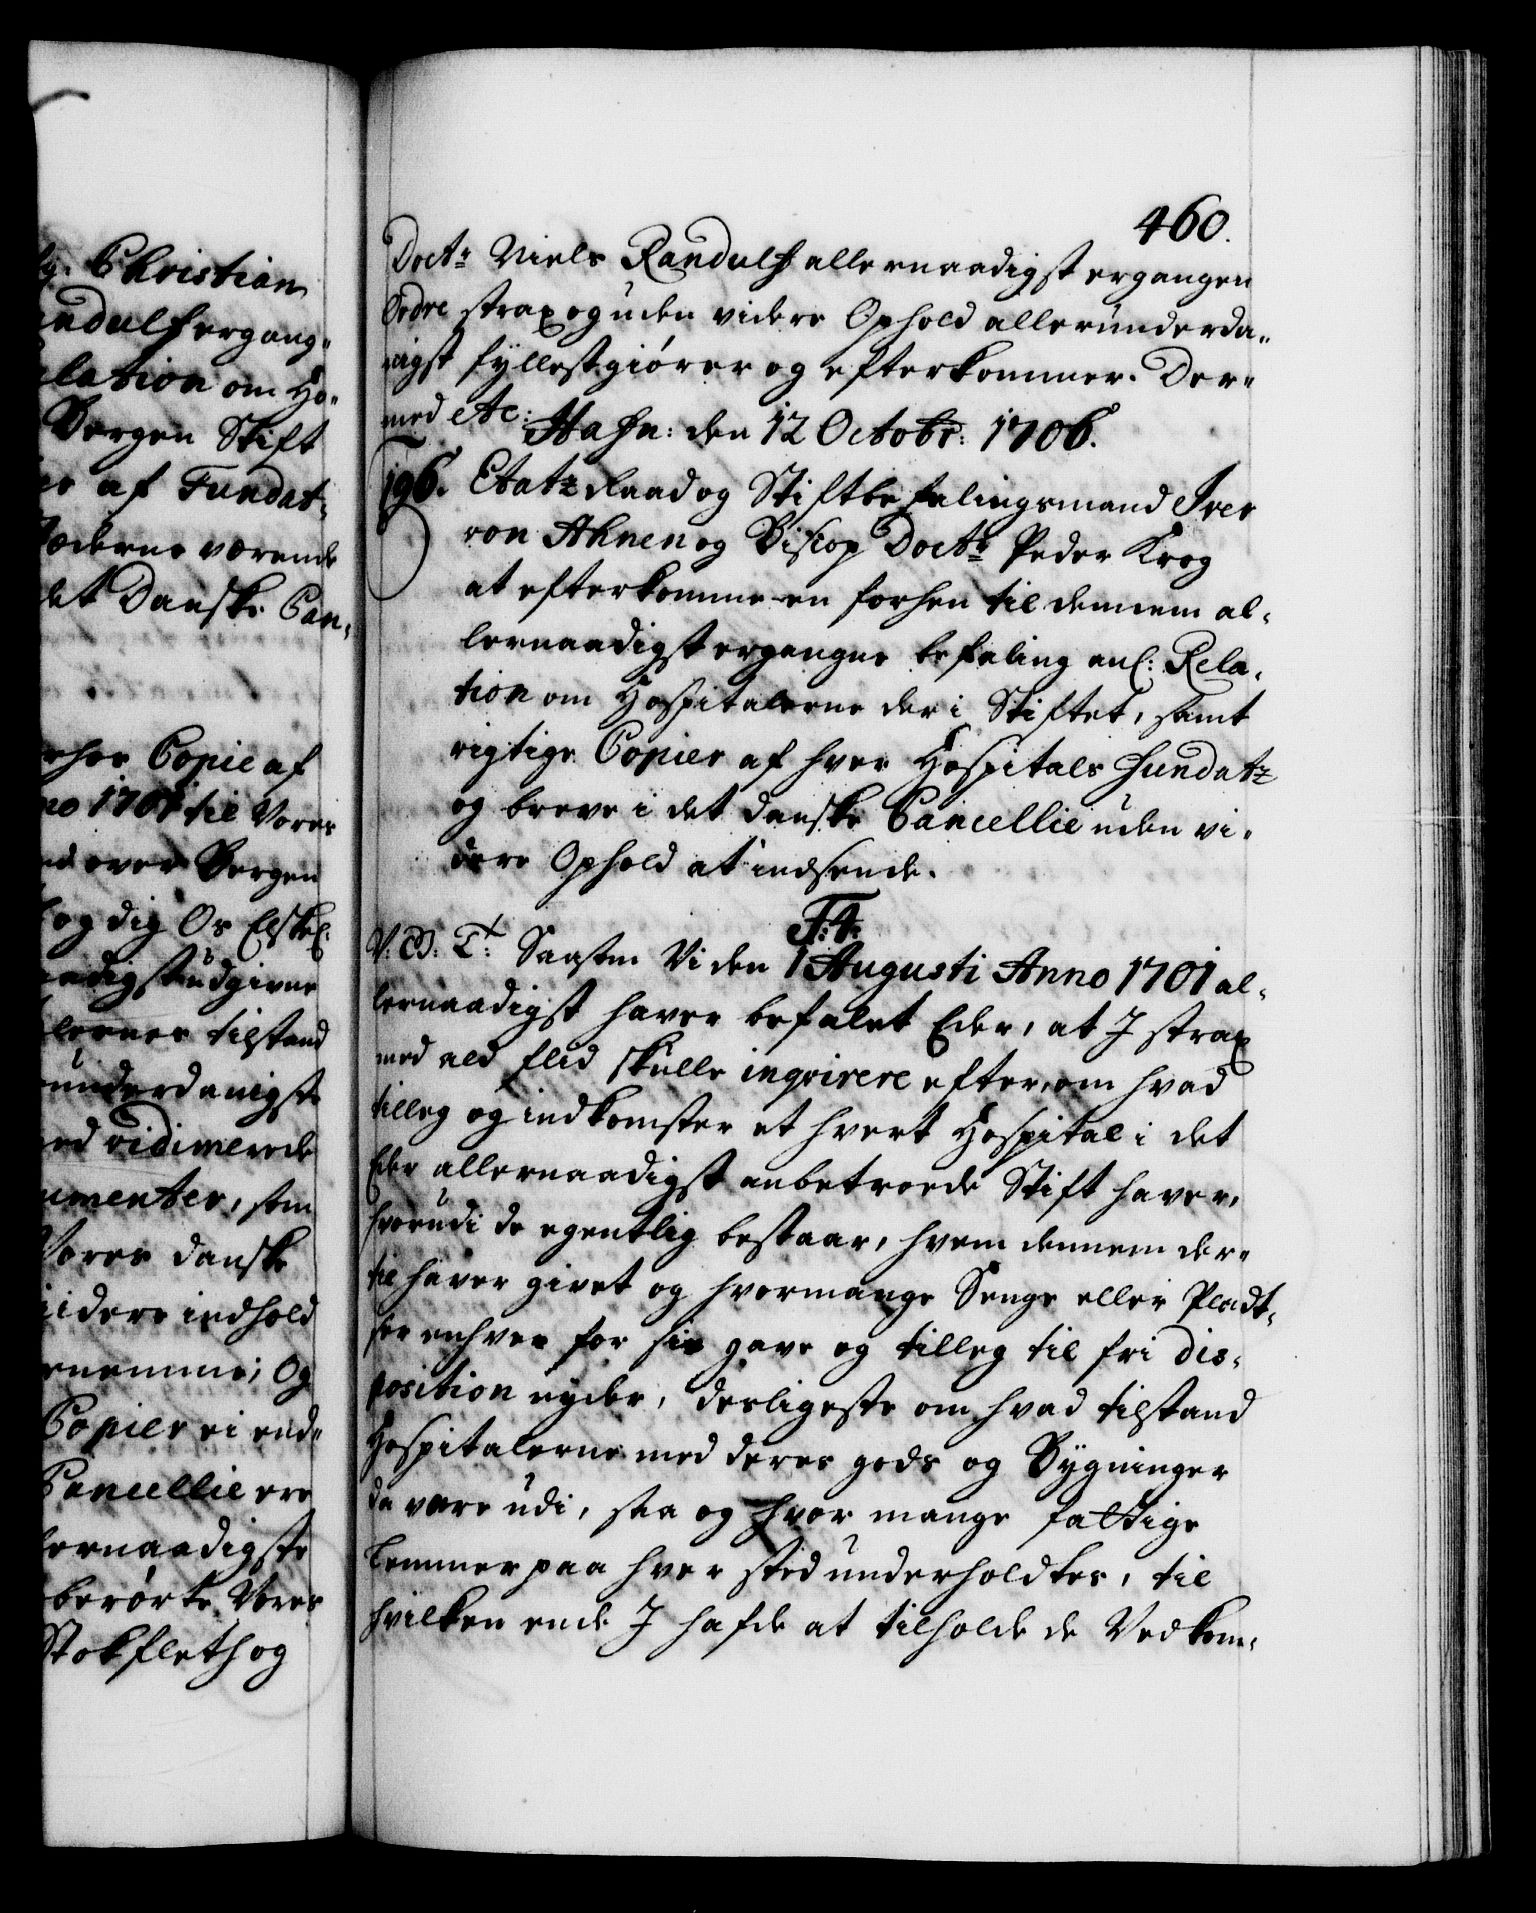 460.
Doctr Niels Randulf allernaadigst ergangen
Ordre strax og uden videre Ophold allerunderda-
nigst fyllestgiører og efterkommer. Der-
med etc: Hafn: den 12 Octobr: 1706.
196. Etatz Raad og Stiftbefalingsmand Iver
von Ahnen og Biscop Doctr Peder Krog
at efterkomme en forhen til dennem al-
lernaadigst ergangne befaling anl: Rela-
tion om Hospitalerne der i Stiftet, samt
rigtige Copier af hver Hospitals Fundatz
og breve i det danske Cancellie uden vi-
dere Ophold at indsende.
F. 4.
V. G. T. Saasom Vi den 1 Augusti Anno 1701 al-
lernaadigst haver befalet Eder, at I strax
med ald flid skulle inqvirere efter, om hvad
tilleg og indkomster et hvert Hospital i det
Eder allernaadigst anbetroede Stift haver,
hvorudi de egentlig bestaar, hvem dennem der-
til haver givet og hvormange Senge eller Pladt-
ser enhver for sin gave og tilleg til fri dis-
position nyder, desligeste om hvad tilstand
Hospitalerne med deres gods og Bygninger
da vare udi, saa og hvor mange fattige
Lemmer paa hver sted underholdtes, til
hvilken ende I hafde at tilholde de Vedkom-
Christian
Randulf ergang-
Relation om Ho-
Bergen Stift
af Fundat-
stæderne værende
det Danske Can-
Copie af
1701 til Vores
over Bergen
og dig Os Elskel:
udgivne
tilstand
underdanigste
vidimerede
umenter, som
Vores danske
videre indhold
Og
Copier ei end-
Cancellie ere
allernaadigste
berørte Vores
Stokfleth og